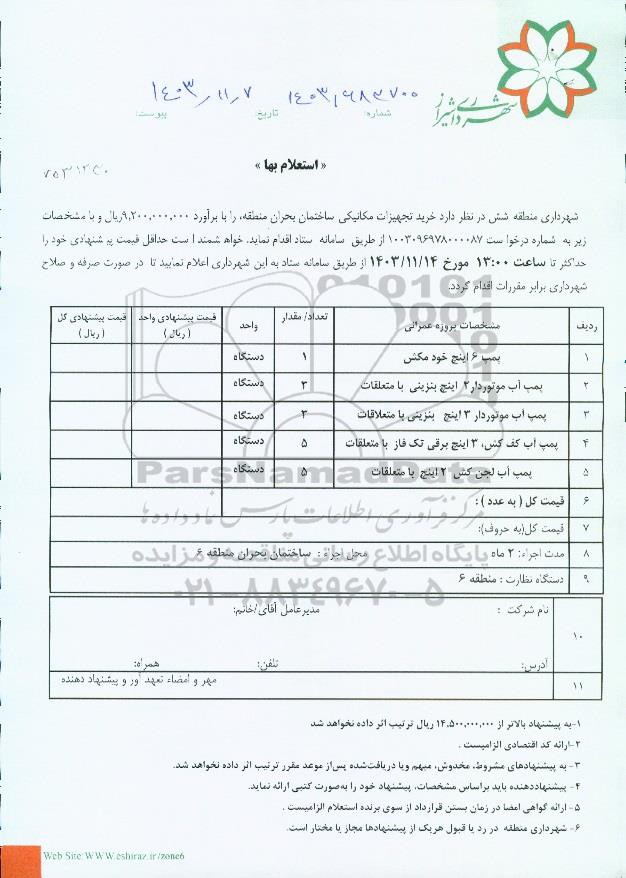 شهرداری شیراز
شماره: ۱۴۰۳/۶۸۳۷۰۰ تاریخ: ۱۴۰۳/۱۱/۷ پیوست:
« استعلام بها »
شهرداری منطقه شش در نظر دارد خرید تجهیزات مکانیکی ساختمان بحران منطقه، را با برآورد ۹,۲۰۰,۰۰۰,۰۰۰ریال و با مشخصات
زیر به شماره درخواست ۱۰۰۳۰۹۶۹۷۸۰۰۰۰۸۷ از طریق سامانه ستاد اقدام نماید. خواهشمند است حداقل قیمت پیشنهادی خود را
حداکثر تا ساعت ۱۳:۰۰ مورخ ۱۴۰۳/۱۱/۱۴ از طریق سامانه ستاد به این شهرداری اعلام نمایید تا در صورت صرفه و صلاح
شهرداری برابر مقررات اقدام گردد.
ردیف مشخصات پروژه عمرانی تعداد/ مقدار واحد قیمت پیشنهادی واحد ( ریال ) قیمت پیشنهادی کل ( ریال )
۱ پمپ ۶ اینچ خود مکش ۱ دستگاه
۲ پمپ آب موتوردار۲ اینچ بنزینی با متعلقات ۳ دستگاه
۳ پمپ آب موتوردار ۳ اینچ بنزینی با متعلاقات ۲ دستگاه
۴ پمپ آب کف کش، ۳ اینچ برقی تک فاز با متعلقات ۵ دستگاه
۵ پمپ آب لجن کش ۲ اینچ با متعلقات ۵ دستگاه
۶ قیمت کل ( به عدد ) :
۷ قیمت کل(به حروف):
۸ مدت اجراء: ۲ ماه محل اجراء : ساختمان بحران منطقه ۶
۹ دستگاه نظارت : منطقه ۶
۱۰ نام شرکت : مدیرعامل آقای/خانم:
آدرس: تلفن: همراه:
۱۱ مهر و امضاء تعهد آور و پیشنهاد دهنده
ParsNamadData
مرکز فرآوری اطلاعات پارس نماد داده ها
پایگاه اطلاع رسانی مناقصه و مزایده
۰۲۱-۸۸۳۴۹۶۷۰-۵
۱-به پیشنهاد بالاتر از ۱۴,۵۰۰,۰۰۰,۰۰۰ ریال ترتیب اثر داده نخواهد شد
۲-ارائه کد اقتصادی الزامیست .
۳- به پیشنهادهای مشروط، مخدوش، مبهم ویا دریافت‌شده پس‌از موعد مقرر ترتیب اثر داده نخواهد شد.
۴- پیشنهاددهنده باید براساس مشخصات، پیشنهاد خود را به‌صورت کتبی ارائه نماید.
۵- ارائه گواهی امضا در زمان بستن قرارداد از سوی برنده استعلام الزامیست .
۶- شهرداری منطقه در رد یا قبول هریک از پیشنهادها مجاز یا مختار است.
Web Site:WWW.eshiraz.ir/zone6